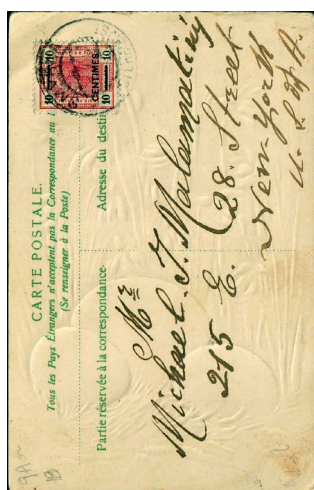 CARTE POSTALE.
Tous les Pays Étrangers n'acceptent pas la Correspondance au
(Se renseigner à la Poste)
Partie réservée à la correspondance
Adresse du destin
10 CENTIMES 10
10 10
Mr
Michael. J. Malamatiny
215 E. 28. Street
New York
U. S. of A.